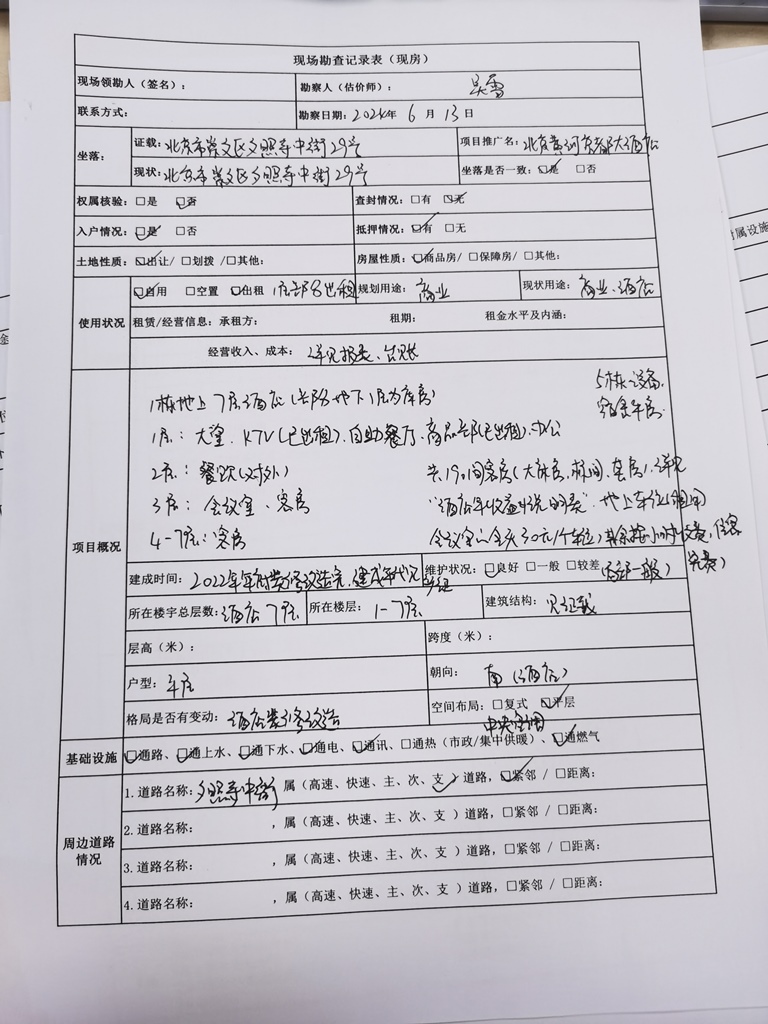 现场勘查记录表（现房）
现场领勘人（签名）： 勘察人（估价师）： 吴雪
联系方式： 勘察日期：2024年 6 月 13 日
坐落： 证载：北京市崇文区夕照寺中街29号 项目推广名：北京黄河京都大酒店
现状：北京市崇文区夕照寺中街29号 坐落是否一致：☑是 □否
权属核验：□是 ☑否 查封情况：□有 ☑无
入户情况：☑是 □否 抵押情况：☑有 □无
土地性质：☑出让/ □划拨 /□其他： 房屋性质：☑商品房/ □保障房/ □其他：
使用状况 ☑自用 □空置 ☑出租 1层部分出租 规划用途：商业 现状用途：商业、酒店
租赁/经营信息：承租方： 租期： 租金水平及内涵：
经营收入、成本： 详见报表、台账
项目概况
1栋地上7层酒店（长部分地下1层为库房） 5栋设备
1层：大堂、KTV（已出租）、自助餐厅、商品部（已出租）、办公
2层：餐饮（对外） 共190间客房（大床房、标间、套房），详见
3层：会议室、客房 "酒店年收益情况明细表" 地上车位
4-7层：客房 会议室 全天30元/个车位
建成时间：2022年年 装修改造完，建成年代见 维护状况：☑良好 □一般 □较差 一般）
所在楼宇总层数：酒店7层 所在楼层： 1-7层 建筑结构： 见证载
层高（米）： 跨度（米）：
户型： 平层 朝向： 南（酒店）
格局是否有变动： 酒店装修改造 空间布局：□复式 ☑平层
中央空调
基础设施 ☑通路、☑通上水、☑通下水、☑通电、☑通讯、□通热（市政/集中供暖）、☑通燃气
周边道路情况
1.道路名称：夕照寺中街，属（高速、快速、主、次、支✓）道路，☑紧邻 / □距离：
2.道路名称： ，属（高速、快速、主、次、支 ）道路，□紧邻 / □距离：
3.道路名称： ，属（高速、快速、主、次、支 ）道路，□紧邻 / □距离：
4.道路名称： ，属（高速、快速、主、次、支 ）道路，□紧邻 / □距离：